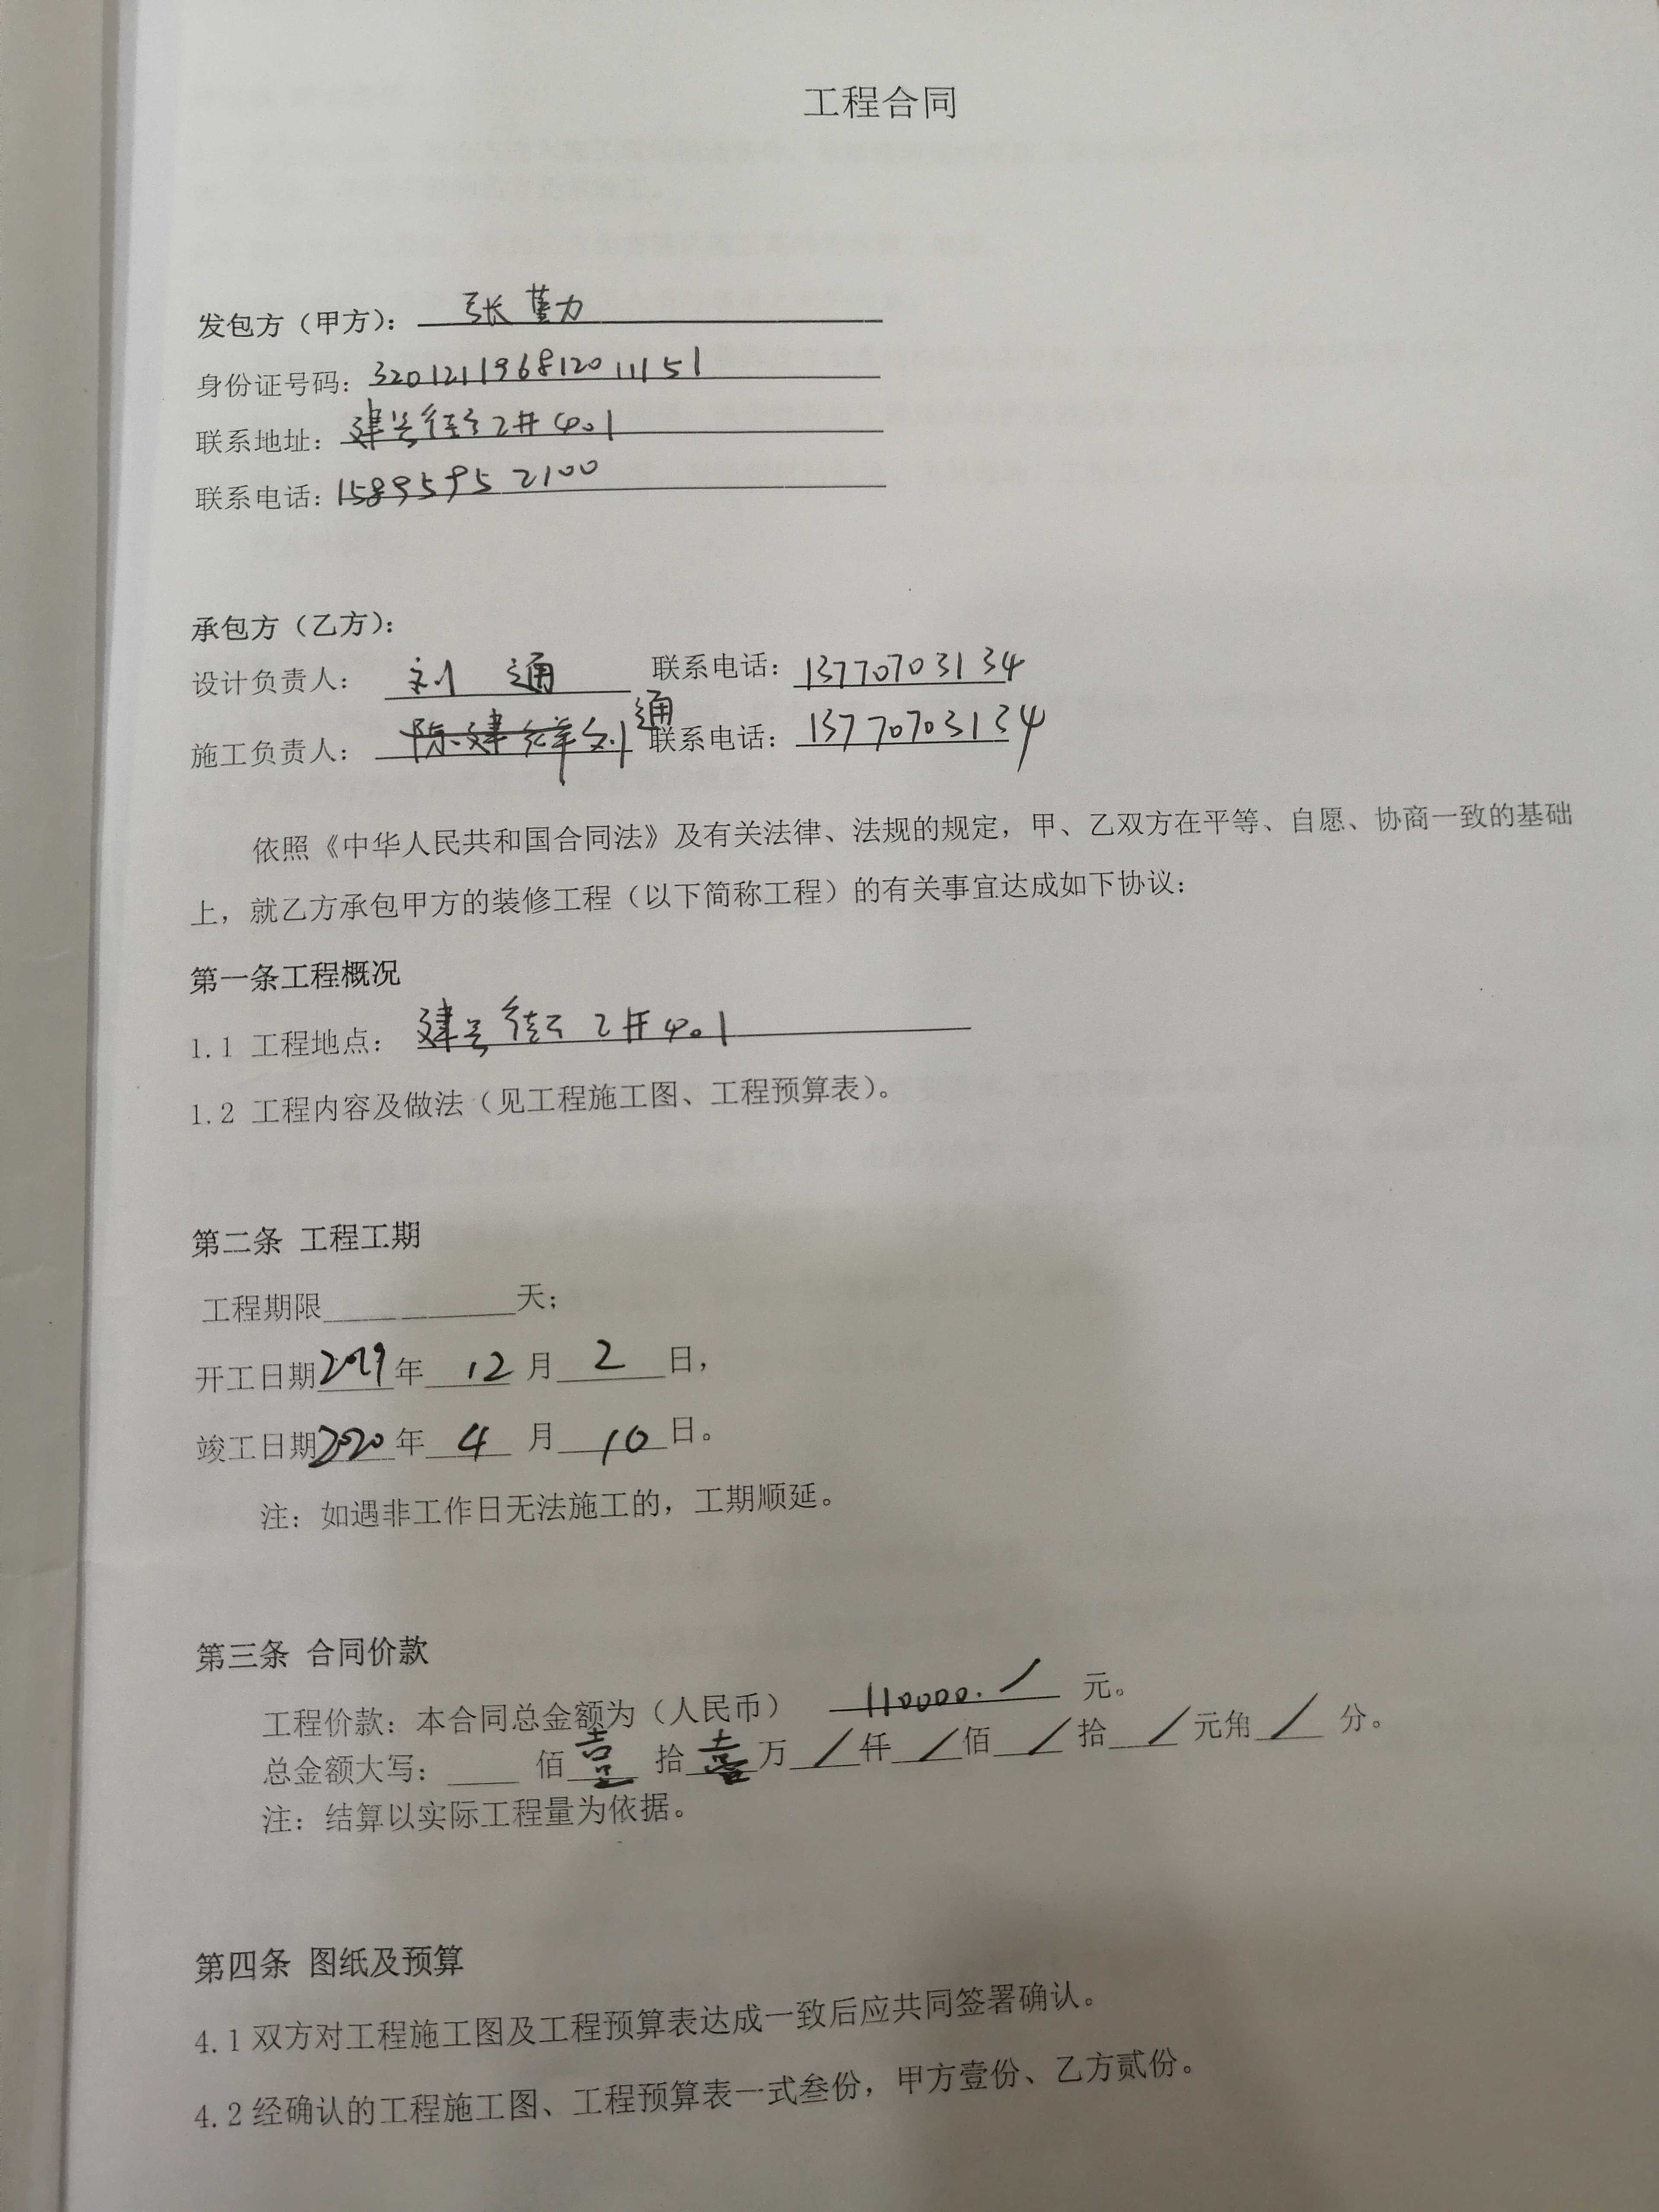 工程合同
发包方（甲方）： 张
身份证号码：320121196812011151
联系地址： 401
联系电话：15895952100
承包方（乙方）：
设计负责人： 刘 通 联系电话：13770703134
施工负责人： 陈建祥刘通 联系电话：13770703134
依照《中华人民共和国合同法》及有关法律、法规的规定，甲、乙双方在平等、自愿、协商一致的基础
上，就乙方承包甲方的装修工程（以下简称工程）的有关事宜达成如下协议：
第一条工程概况
1.1 工程地点： 401
1.2 工程内容及做法（见工程施工图、工程预算表）。
第二条 工程工期
工程期限____________天；
开工日期2019年 12 月 2 日，
竣工日期2020年 4 月 10 日。
注：如遇非工作日无法施工的，工期顺延。
第三条 合同价款
工程价款：本合同总金额为（人民币） 110000. / 元。
总金额大写：____ 佰 壹 拾 壹 万 / 仟 / 佰 / 拾 / 元角 / 分。
注：结算以实际工程量为依据。
第四条 图纸及预算
4.1 双方对工程施工图及工程预算表达成一致后应共同签署确认。
4.2 经确认的工程施工图、工程预算表一式叁份，甲方壹份、乙方贰份。